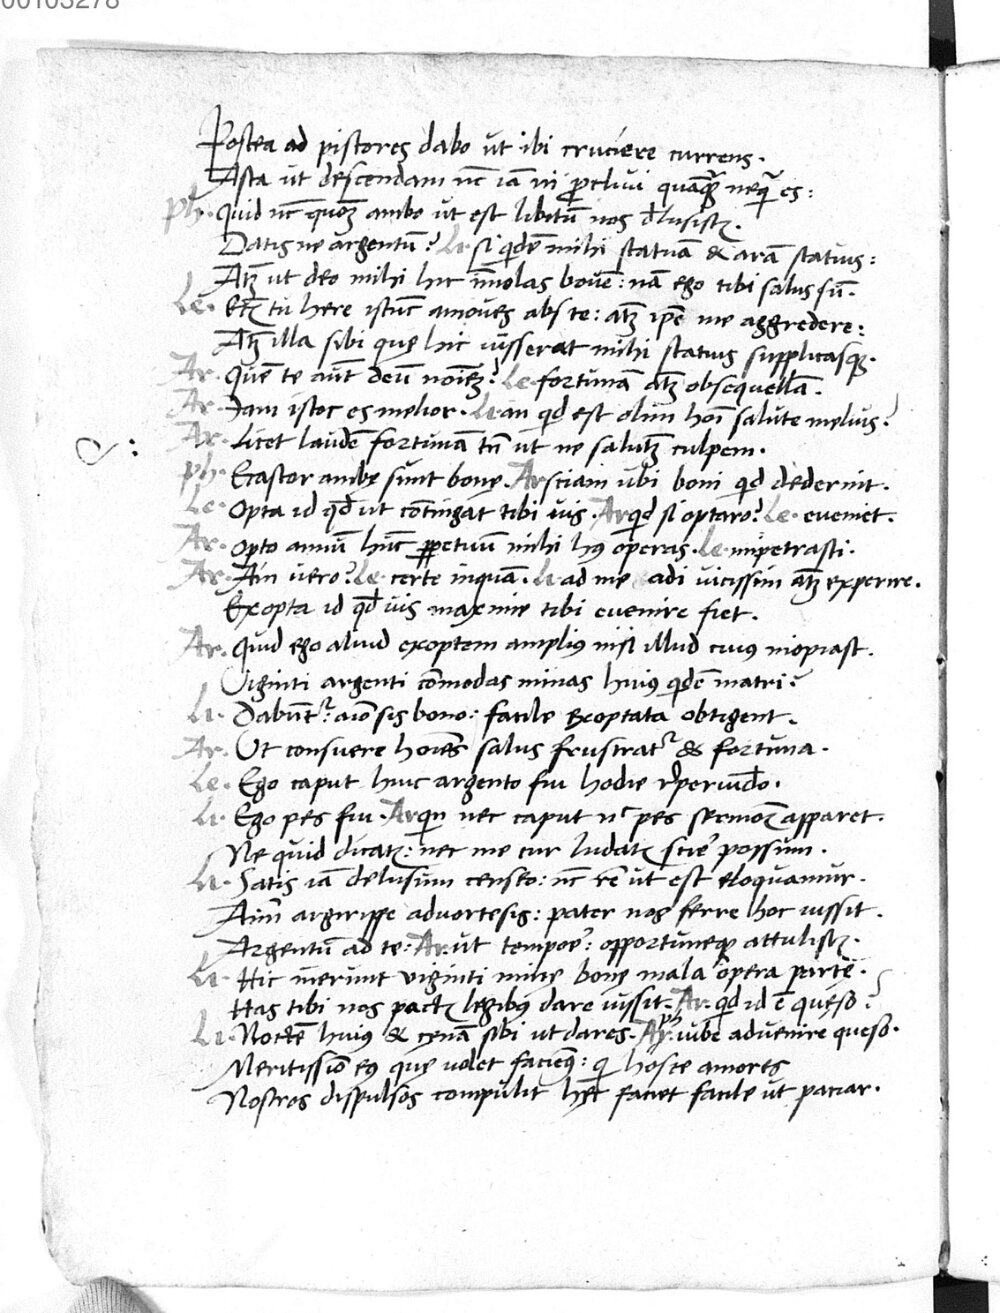 00103278
Postea ad pistores dabo ut ibi cruciere currens.
Asta ut descendam nc iā in ꝓclivi quāꝗ̄ neq̄ es:
Ph. Quid nc quoꝫ ambo ut est libitū nos dlusistꝭ.
Datis ne argentū? Li. si qdē mihi statuā & arā statuis:
Atꝫ ut deo mihi hic īmolas bouē: nā ego tibi salus sū.
Le. Etꝫ tū here istūc amoues abs te: atꝫ ipē me aggredere:
Atꝫ illa sibi quę hic iusserat mihi statuis supplicasqꝫ.
Ar. Quē te aūt deū noiēꝫ? Le. fortunā atꝫ obsequellā.
Ar. Iam istoc es melior. Li. an qd est olim hoī salute melius?
Ar. Licet laudē fortunā tn̄ ut ne salutꝫ culpem.
Ph. Ecastor ambę sunt bonę. Ar. sciam ubi boni qd dederint.
Le. Opta id qd ut cōtingat tibi vis. Ar. qd si optaro? Le. eveniet.
Ar. Opto annū hūc ꝑpetuū mihi hꝰ operas. Le. impetrasti.
Ar. Ain vero? Le. certe inquā. Li. ad me adi vicissim atꝫ experire.
Exopta id qd vis maxime tibi evenire fiet.
Ar. Quid ego aliud exoptem ampliꝰ nisi illud cuiꝰ inopiast.
Viginti argenti cōmodas minas huiꝰ qdē matri?
Li. Dabunt᷑: aīo sis bono: facile exoptata obtigent.
Ar. Ut consuere hoīēs salus frustrat᷑ & fortuna.
Le. Ego caput huic argento fui hodie rꝑeriūdo.
Li. Ego pes fui. Ar. quī nec caput n͛ pes sermoꝫ apparet.
Ne quid dicatꝭ: nec me cur ludatꝭ scire possum.
Li. Satis iā delusum censeo: nc rē ut est eloquamur.
Aim̄ argirippe advorte sis: pater nos ferre hoc iussit.
Argentū ad te: Ar. ut tempoē: opportuneqꝫ attulistꝭ.
Li. Hic inerunt viginti minę bonę mala opera partę.
Has tibi nos pactꝭ legibꝰ dare iussit. Ar. qd id ē quęso?
Li. Noctē huiꝰ & cęnā sibi ut dares. Ar. iube advenire queso.
Ph.
Meritissīo eꝰ que volet faciemꝰ: q̄ hosce amores
Nostros dispulsos compulit Le. faciet facile ut patiar.